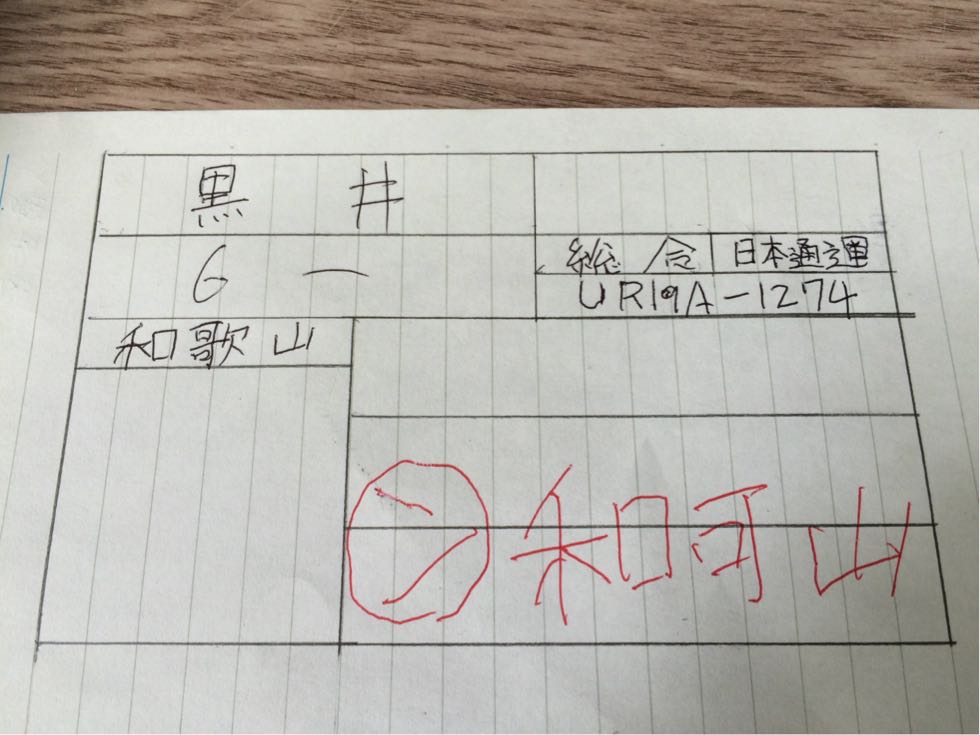 黒井
6 一
総合 日本通運
UR19A-1274
和歌山
ン 和可山